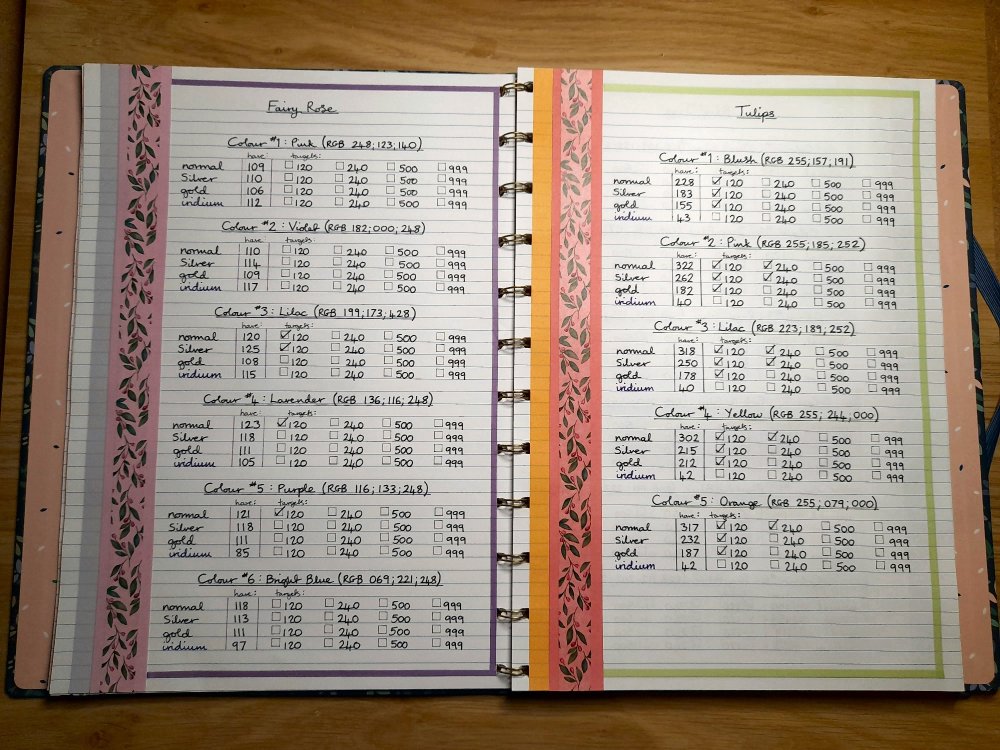 Fairy Rose
Colour #1: Pink (RGB 248;123;140)
have: targets:
normal 109 ☐120 ☐240 ☐500 ☐999
Silver 110 ☐120 ☐240 ☐500 ☐999
gold 106 ☐120 ☐240 ☐500 ☐999
iridium 112 ☐120 ☐240 ☐500 ☐999
Colour #2: Violet (RGB 182;000;248)
have: targets:
normal 110 ☐120 ☐240 ☐500 ☐999
Silver 114 ☐120 ☐240 ☐500 ☐999
gold 109 ☐120 ☐240 ☐500 ☐999
iridium 117 ☐120 ☐240 ☐500 ☐999
Colour #3: Lilac (RGB 199;173;428)
have: targets:
normal 120 ☑120 ☐240 ☐500 ☐999
Silver 125 ☑120 ☐240 ☐500 ☐999
gold 108 ☐120 ☐240 ☐500 ☐999
iridium 115 ☐120 ☐240 ☐500 ☐999
Colour #4: Lavender (RGB 136;116;248)
have: targets:
normal 123 ☑120 ☐240 ☐500 ☐999
Silver 118 ☐120 ☐240 ☐500 ☐999
gold 111 ☐120 ☐240 ☐500 ☐999
iridium 105 ☐120 ☐240 ☐500 ☐999
Colour #5: Purple (RGB 116;133;248)
have: targets:
normal 121 ☑120 ☐240 ☐500 ☐999
Silver 118 ☐120 ☐240 ☐500 ☐999
gold 111 ☐120 ☐240 ☐500 ☐999
iridium 85 ☐120 ☐240 ☐500 ☐999
Colour #6: Bright Blue (RGB 069;221;248)
have: targets:
normal 118 ☐120 ☐240 ☐500 ☐999
Silver 113 ☐120 ☐240 ☐500 ☐999
gold 111 ☐120 ☐240 ☐500 ☐999
iridium 97 ☐120 ☐240 ☐500 ☐999
Tulips
Colour #1: Blush (RGB 255;157;191)
have: targets:
normal 228 ☑120 ☐240 ☐500 ☐999
Silver 183 ☑120 ☐240 ☐500 ☐999
gold 155 ☑120 ☐240 ☐500 ☐999
iridium 43 ☐120 ☐240 ☐500 ☐999
Colour #2: Pink (RGB 255;185;252)
have: targets:
normal 322 ☑120 ☑240 ☐500 ☐999
Silver 262 ☑120 ☑240 ☐500 ☐999
gold 182 ☑120 ☐240 ☐500 ☐999
iridium 40 ☐120 ☐240 ☐500 ☐999
Colour #3: Lilac (RGB 223;189;252)
have: targets:
normal 318 ☑120 ☑240 ☐500 ☐999
Silver 250 ☑120 ☑240 ☐500 ☐999
gold 178 ☑120 ☐240 ☐500 ☐999
iridium 40 ☐120 ☐240 ☐500 ☐999
Colour #4: Yellow (RGB 255; 244;000)
have: targets:
normal 302 ☑120 ☑240 ☐500 ☐999
Silver 215 ☑120 ☐240 ☐500 ☐999
gold 212 ☑120 ☐240 ☐500 ☐999
iridium 42 ☐120 ☐240 ☐500 ☐999
Colour #5: Orange (RGB 255; 079;000)
have: targets:
normal 317 ☑120 ☑240 ☐500 ☐999
Silver 232 ☑120 ☐240 ☐500 ☐999
gold 187 ☑120 ☐240 ☐500 ☐999
iridium 42 ☐120 ☐240 ☐500 ☐999